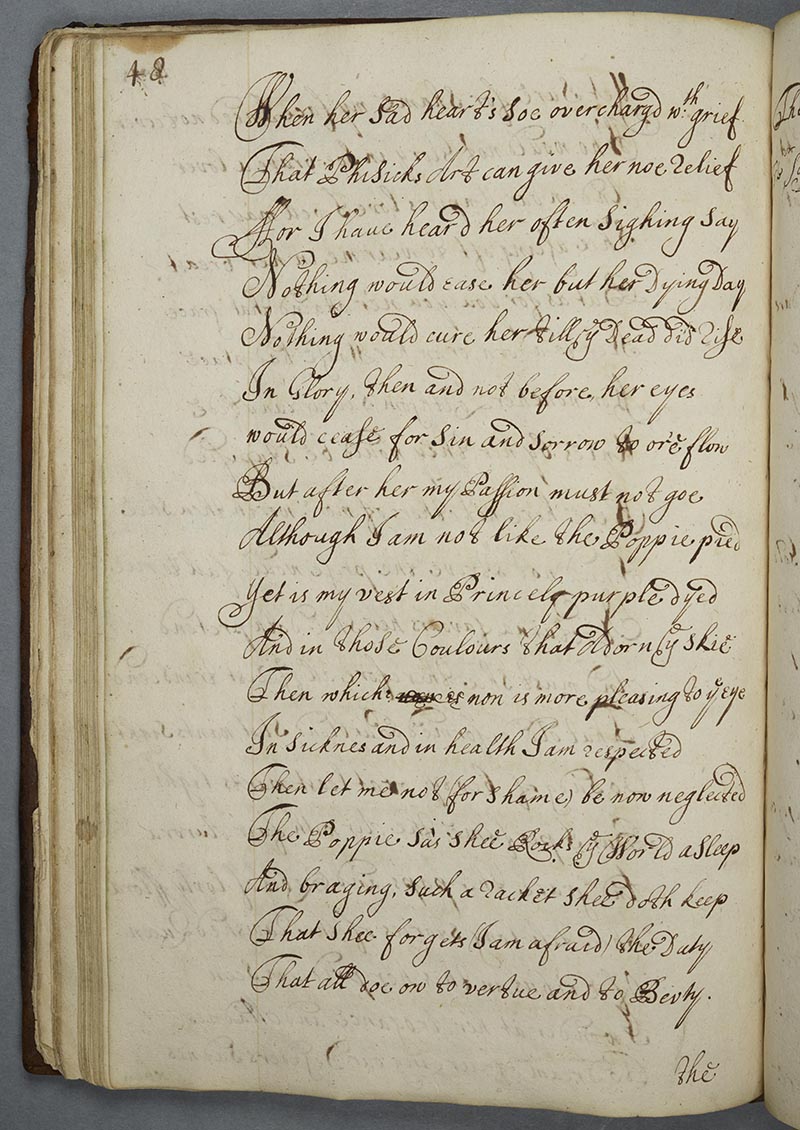 48
When her sad heart's soe overchargd wth grief
That Phisicks Art can give her noe relief
ffor I haue heard her often sighing say
Nothing would ease her but her Dying Day
Nothing would cure her till ye Dead did rise
In Glory, then and not before, her eyes
would cease for sin and sorrow to ore flow
But after her my Passion must not goe
Although I am not like the Poppie pied
Yet is my vest in Princely purple dyed
And in those Coulours that Adorn ye skie
Then which non is more pleasing to ye eye
In sicknes and in health I am respected
Then let me not (for shame) be now neglected
The Poppie sais shee Rocks ye World asleep
And, braging, such a racket shee doth keep
That shee forgets (I am afraid) the Duty
That all doe ow to vertue and to Bevty.
the